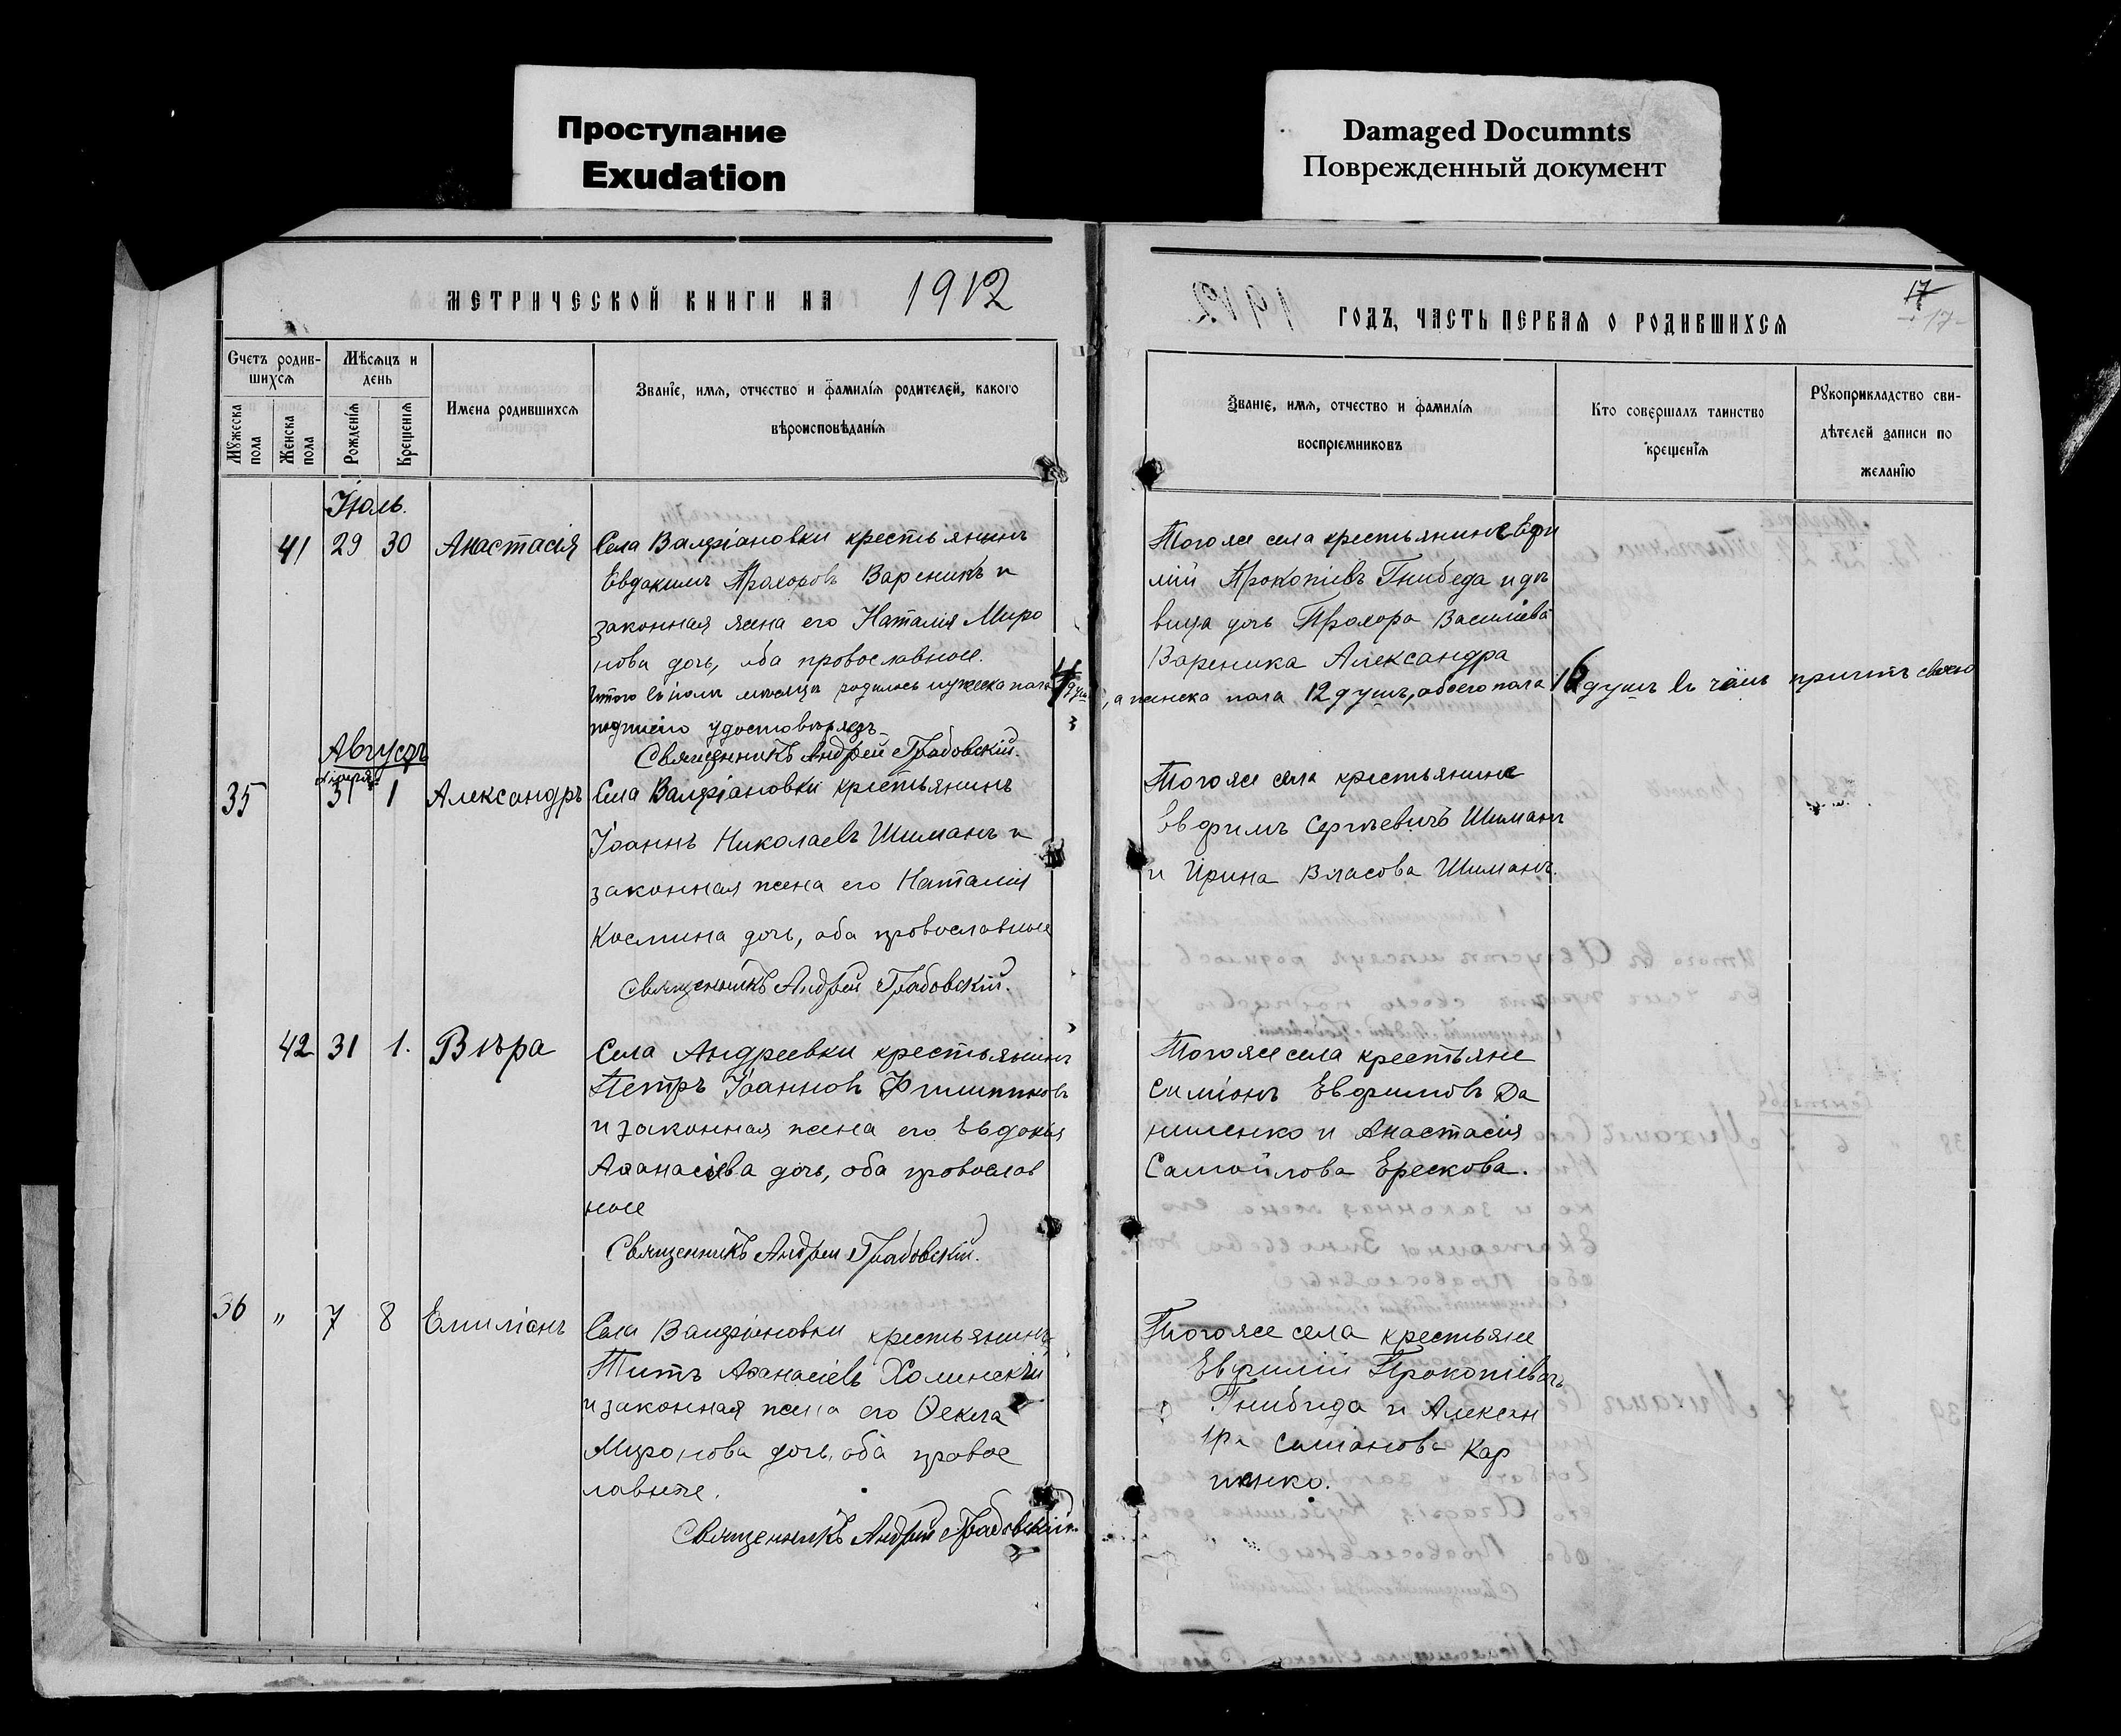 Проступание
Exudation
Damaged Documnts
Поврежденный документ
МЕТРИЧЕСКОЙ КНИГИ НА 1912
ГОДЪ, ЧАСТЬ ПЕРВАЯ О РОДИВШИХСЯ
17
-17-
Счетъ родив-
шихся
Мѣсяцъ и
день
Мужеска
пола
Женска
пола
Рожденія
Крещенія
Имена родившихся
Званіе, имя, отчество и фамилія родителей, какого
вѣроисповѣданія
Званіе, имя, отчество и фамилія
воспріемниковъ
Кто совершалъ таинство
крещенія
Рукоприкладство сви-
дѣтелей записи по
желанію
Іюль.
41 29 30 Анастасія
Села Валеріановки крестьянинъ
Евдакимъ Прохоровъ Вареникъ и
законная жена его Наталія Миро
нова дочь, оба провославные.
Того же села крестьянинъ Ефи
мій Прокопіевъ Гнибеда и дѣ
вица дочь Прохора Василіева
Вареника Александра
Итого въ іюлѣ мѣсяцѣ родилось мужеска пола 4 душ, а женска пола 12 душъ, обоего пола 16 душъ въ чемъ причтъ своею
подписью удостовѣряетъ
Священникъ Андрей Грабовскій.
Августъ
35 31 1 Александръ
Села Валеріановки крестьянинъ
Іоаннъ Николаевъ Шиманъ и
законная жена его Наталія
Космина дочь, оба провославные
Священникъ Андрей Грабовскій.
Того же села крестьяне
Евфимъ Сергѣевичъ Шиманъ
и Ирина Власова Шиманъ.
42 31 1. Вѣра
Села Андреевки крестьянинъ
Петръ Іоанновъ Филипповъ
и законная жена его Евдокія
Аѳанасіева дочь, оба провослав
ные
Священникъ Андрей Грабовскій.
Того же села крестьяне
Симіонъ Евфимовъ Да
ниленко и Анастасія
Самойлова Ерескова.
36 " 7 8 Емиліанъ
Села Валеріановки крестьянинъ
Титъ Аѳанасіевъ Холинскій
и законная жена его Ѳекла
Миронова дочь, оба правос
лавные.
Священникъ Андрей Грабовскій.
Того же села крестьяне
Евфимій Прокопіевичъ
Гнибида и Алексан
дра Симіонова Кар
пенко.